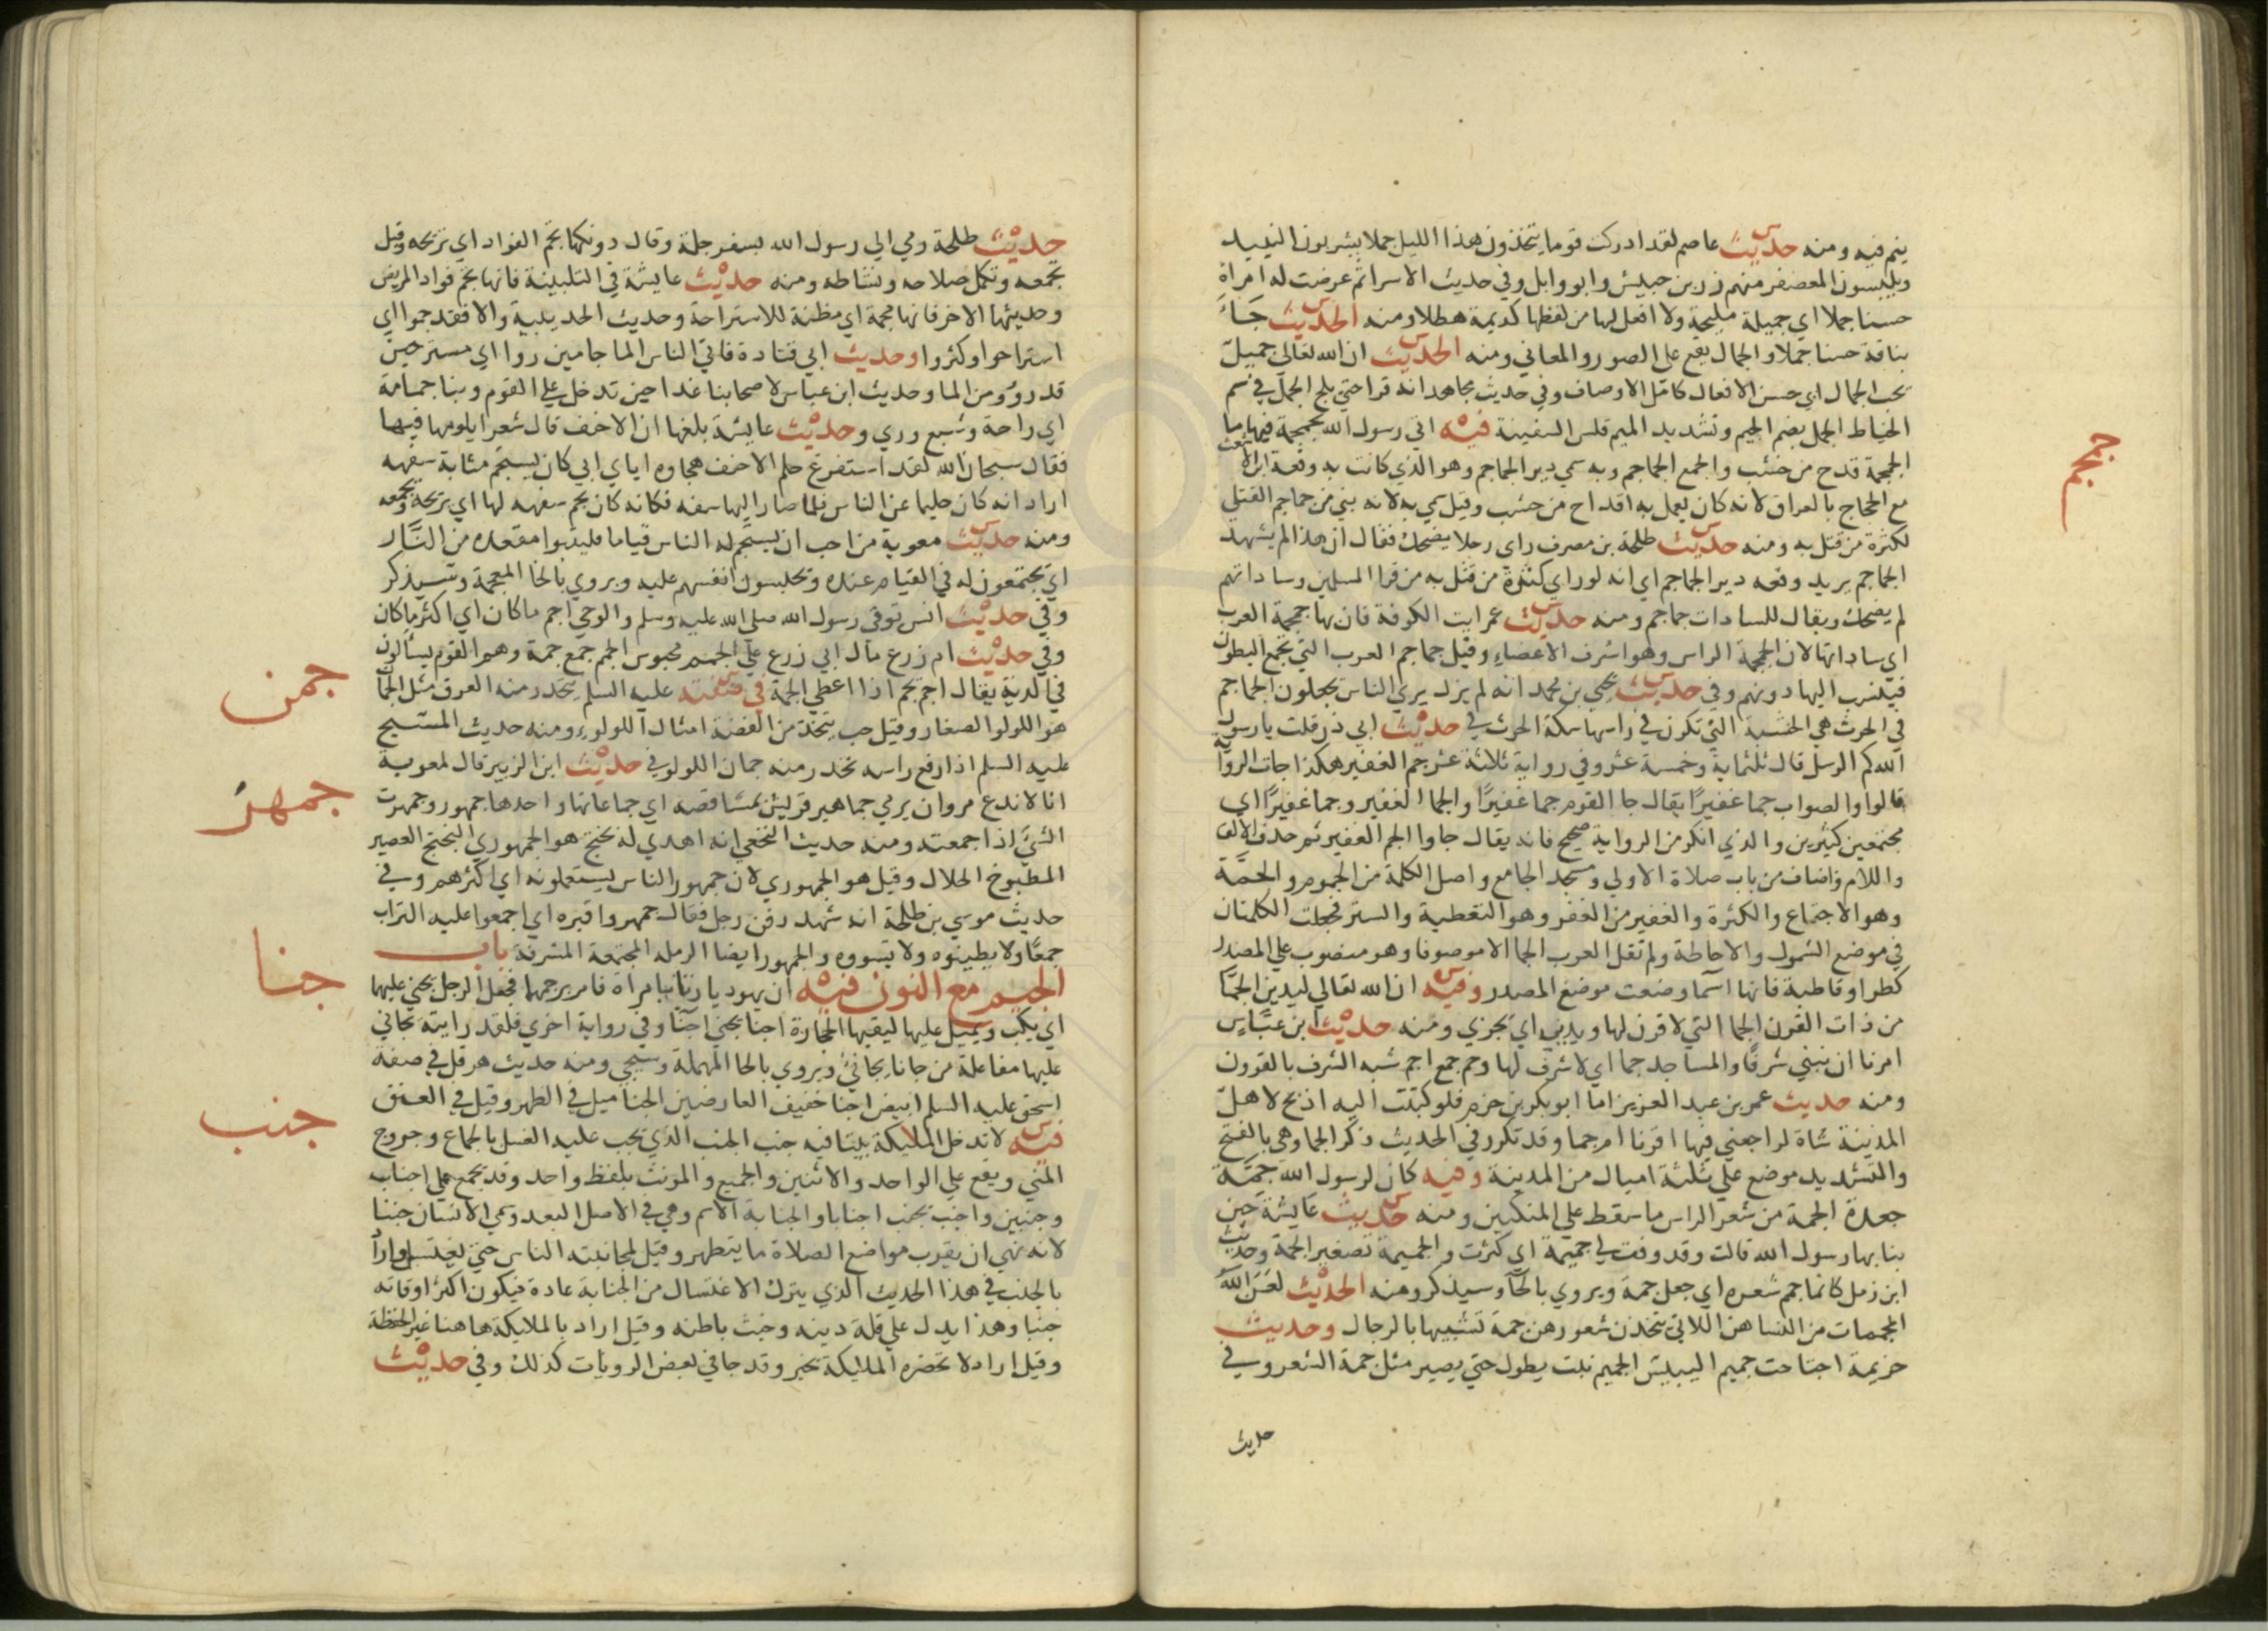 ينم فيه ومنه حديث عاصم لقد ادركت قوما يتخذون هذا الليل جملا يشربون النبيذ
ويلبسون المعصفر منهم زر بن حبيش وابو وايل وفي حديث الاسرا ثم عرضت له امراة
حسنا جملا اي جميلة مليحة ولا افعل لها من لفظها كديمة هطلا ومنه الحديث جَاءَ
بناقة حسنا جملا والجمال يقع على الصور والمعاني ومنه الحديث ان الله تعالى جميل
يحب الجمال اي حسن الافعال كامل الاوصاف وفي حديث مجاهد انه قرا حتي يلج الجمل في سم
الخياط الجمل بضم الجيم وتشديد الميم قلس السفينة فيه اتي رسول الله بجمجمة فيها ما
الجمجمة قدح من خشب والجمع الجماجم وبه سمي دير الجماجم وهو الذي كانت به وقعة ابن الاشعث
مع الحجاج بالعراق لانه كان يعمل به اقداح من خشب وقيل سمي به لانه بني من جماجم القتلي
لكثرة من قتل به ومنه حديث طلحة بن مصرف راي رجلا يضحك فقال ان هذا لم يشهد
الجماجم يريد وقعة دير الجماجم اي انه لو راي كثرة من قتل به من قرا المسلمين وساداتهم
لم يضحك ويقال للسادات جماجم ومنه حديث عمر ايت الكوفة فان بها جمجمة العرب
اي ساداتها لان الجمجمة الراس وهو اشرف الاعضاء وقيل جماجم العرب التي تجمع البطون
فينسب اليها دونهم وفي حديث يحيي بن محمد انه لم يزل يري الناس يجعلون الجماجم
في الحرث هي الخشبة التي تكون في راسها سكة الحرث في حديث ابي ذر قلت يا رسول
الله كم الرسل قال ثلثماية وخمسة عشر وفي رواية ثلاثة عشر جم الغفير هكذا جات الرواية
قالوا والصواب جما غفيرًا يقال جا القوم جما غفيرًا والجما الغفير وجما غفيرًا اي
مجتمعين كثيرين والذي انكر من الرواية صحيح فانه يقال جاوا الجم الغفير ثم حذف الالف
واللام واضاف من باب صلاة الاولي ومسجد الجامع واصل الكلمة من الجموم والجمَّة
وهو الاجتماع والكثرة والغفير من الغفر وهو التغطية والستر فجعلت الكلمتان
في موضع الشمول والاحاطة ولم تقل العرب الجما الا موصوفا وهو منصوب علي المصدر
كطرا وقاطبة فانها اسما وضعت موضع المصدر وفيه ان الله تعالي ليدين الجمَّا
من ذات القرن الجما التي لا قرن لها ويدي اي يجزي ومنه حديث ابن عبَّاس
امرنا ان نبني شرفًا والمساجد جما اي لا شرف لها وجم جمع اجم شبه الشرف بالقرون
ومنه حديث عمر بن عبد العزيز اما ابو بكر بن حزم فلو كتبت اليه اذبح لاهل
المدينة شاة لراجعني فيها اقرنا ام جما وقد تكرر في الحديث ذكر الجما وهي بالفتح
والتشديد موضع علي ثلثة اميال من المدينة وفيه كان لرسول الله جمَّة
جعدة الجمة من شعر الراس ما سقط علي المنكبين ومنه حديث عايشة حين
بنا بها رسول الله قالت وقد وفت لي جميمة اي كثرت والجميمة تصغير الجمة وحديث
ابن زمل كانما جمم شعره اي جعل جمة ويروي بالحآ وسيذكر ومنه الحديث لعن الله
المجممات من النسا هن اللاتي يتخذن شعورهن جمة تشبيها بالرجال وحديث
خزيمة اجتاحت جميم اليبيس الجميم نبت يطول حتي يصير مثل جمة الشعر وفي
حديث
جمجم
حديث طلحة رمي الي رسول الله بسفرجلة وقال دونكها تجم الفواد اي تريحه وقيل
تجمعه وتكمل صلاحه ونشاطه ومنه حديث عايشة في التلبينة فانها تجم فواد المريض
وحديثها الاخر فانها مجمة اي مظنة للاستراحة وحديث الحديبية والا فقد جموا اي
استراحوا وكثروا وحديث ابي قتادة فاتي الناس الما جامين روا اي مستريحين
قد رووُ من الما وحديث ابن عباس لاصحابنا غدا حين ندخل علي القوم وبنا جمامة
اي راحة وشبع وري وحديث عايشة بلغها ان الاحنف قال شعرا يلومها فيها
فقالت سبحان الله لقد استفرغ حلم الاحنف هجاوه اياي ابي كان يستجم مثابة سفهه
اراد انه كان حليما عن الناس فلما صار اليها سفه فكانه كان يجم سفهه لها اي يريحه ويجمعه
ومنه حديث معوية من احب ان يستجم له الناس قياما فليتبوا مقعده من النَّار
اي يجتمعون له في القيام عنده ويحبسون انفسهم عليه ويروي بالخا المعجمة وسيذكر
وفي حديث انس توفي رسول الله صلي الله عليه وسلم والوحي اجم ما كان اي اكثر ما كان
وفي حديث ام زرع مال ابي زرع علي الجمم محبوس الجمم جمع جمة وهم القوم يسالون
في الدية يقال اجم يجم اذا اعطي الجمة في صفته عليه السلم يتحدر منه العرق مثل الجمان
هو اللولو الصغار وقيل حب يتخذ من الفضة امثال اللولوء ومنه حديث المسيح
عليه السلم اذا رفع راسه تحدر منه جمان اللولو في حديث ابن الزبير قال لمعوية
انا لا ندع مروان يرمي جماهير قريش بمشاقصه اي جماعاتها واحدها جمهور وجمهرت
الشيَ اذا جمعته ومنه حديث النخعي انه اهدي له بختج هو الجمهوري البختج العصير
المطبوخ الحلال وقيل هو الجمهوري لان جمهور الناس يستعملونه اي اكثرهم وفي
حديث موسي بن طلحة انه شهد دفن رجل فقال جمهروا قبره اي اجمعوا عليه التراب
جمعًا ولا يطينوه ولا يسووه والجمهور ايضا الرملة المجتمعة المشرفة باب
الجيم مع النون فيه ان يهوديا زنا بامراة فامر برجمهما فجعل الرجل يجني عليها
اي يكب ويميل عليها ليقيها الحجارة اجنا يجني اجنًا وفي رواية اخري فلقد رايته يجاني
عليها مفاعلة من جانا يجانئ ويروي بالحا المهملة وسيجي ومنه حديث هرقل في صفة
اسحق عليه السلم ابيض اجنا خفيف العارضين الجنا ميل في الظهر وقيل في العنق
فيه لا تدخل الملايكة بيتا فيه جنب الجنب الذي يجب عليه الغسل بالجماع وخروج
المني ويقع علي الواحد والاثنين والجميع والمونث بلفظ واحد وقد يجمع علي اجناب
وجنبين واجنب يجنب اجنابا والجنابة الاسم وهي في الاصل البعد وسمي الانسان جنبا
لانه نهي ان يقرب مواضع الصلاة ما يتطهر وقيل لمجانبته الناس حتي يغتسل واراد
بالجنب في هذا الحديث الذي يترك الاغتسال من الجنابة عادة فيكون اكثر اوقاته
جنبا وهذا يدل علي قلة دينه وخبث باطنه وقيل اراد بالملايكة هاهنا غير الحفظة
وقيل اراد لا تحضره الملايكة بخير وقد جا في بعض الروايات كذلك وفي حديث
جمن
جمهر
جنا
جنب